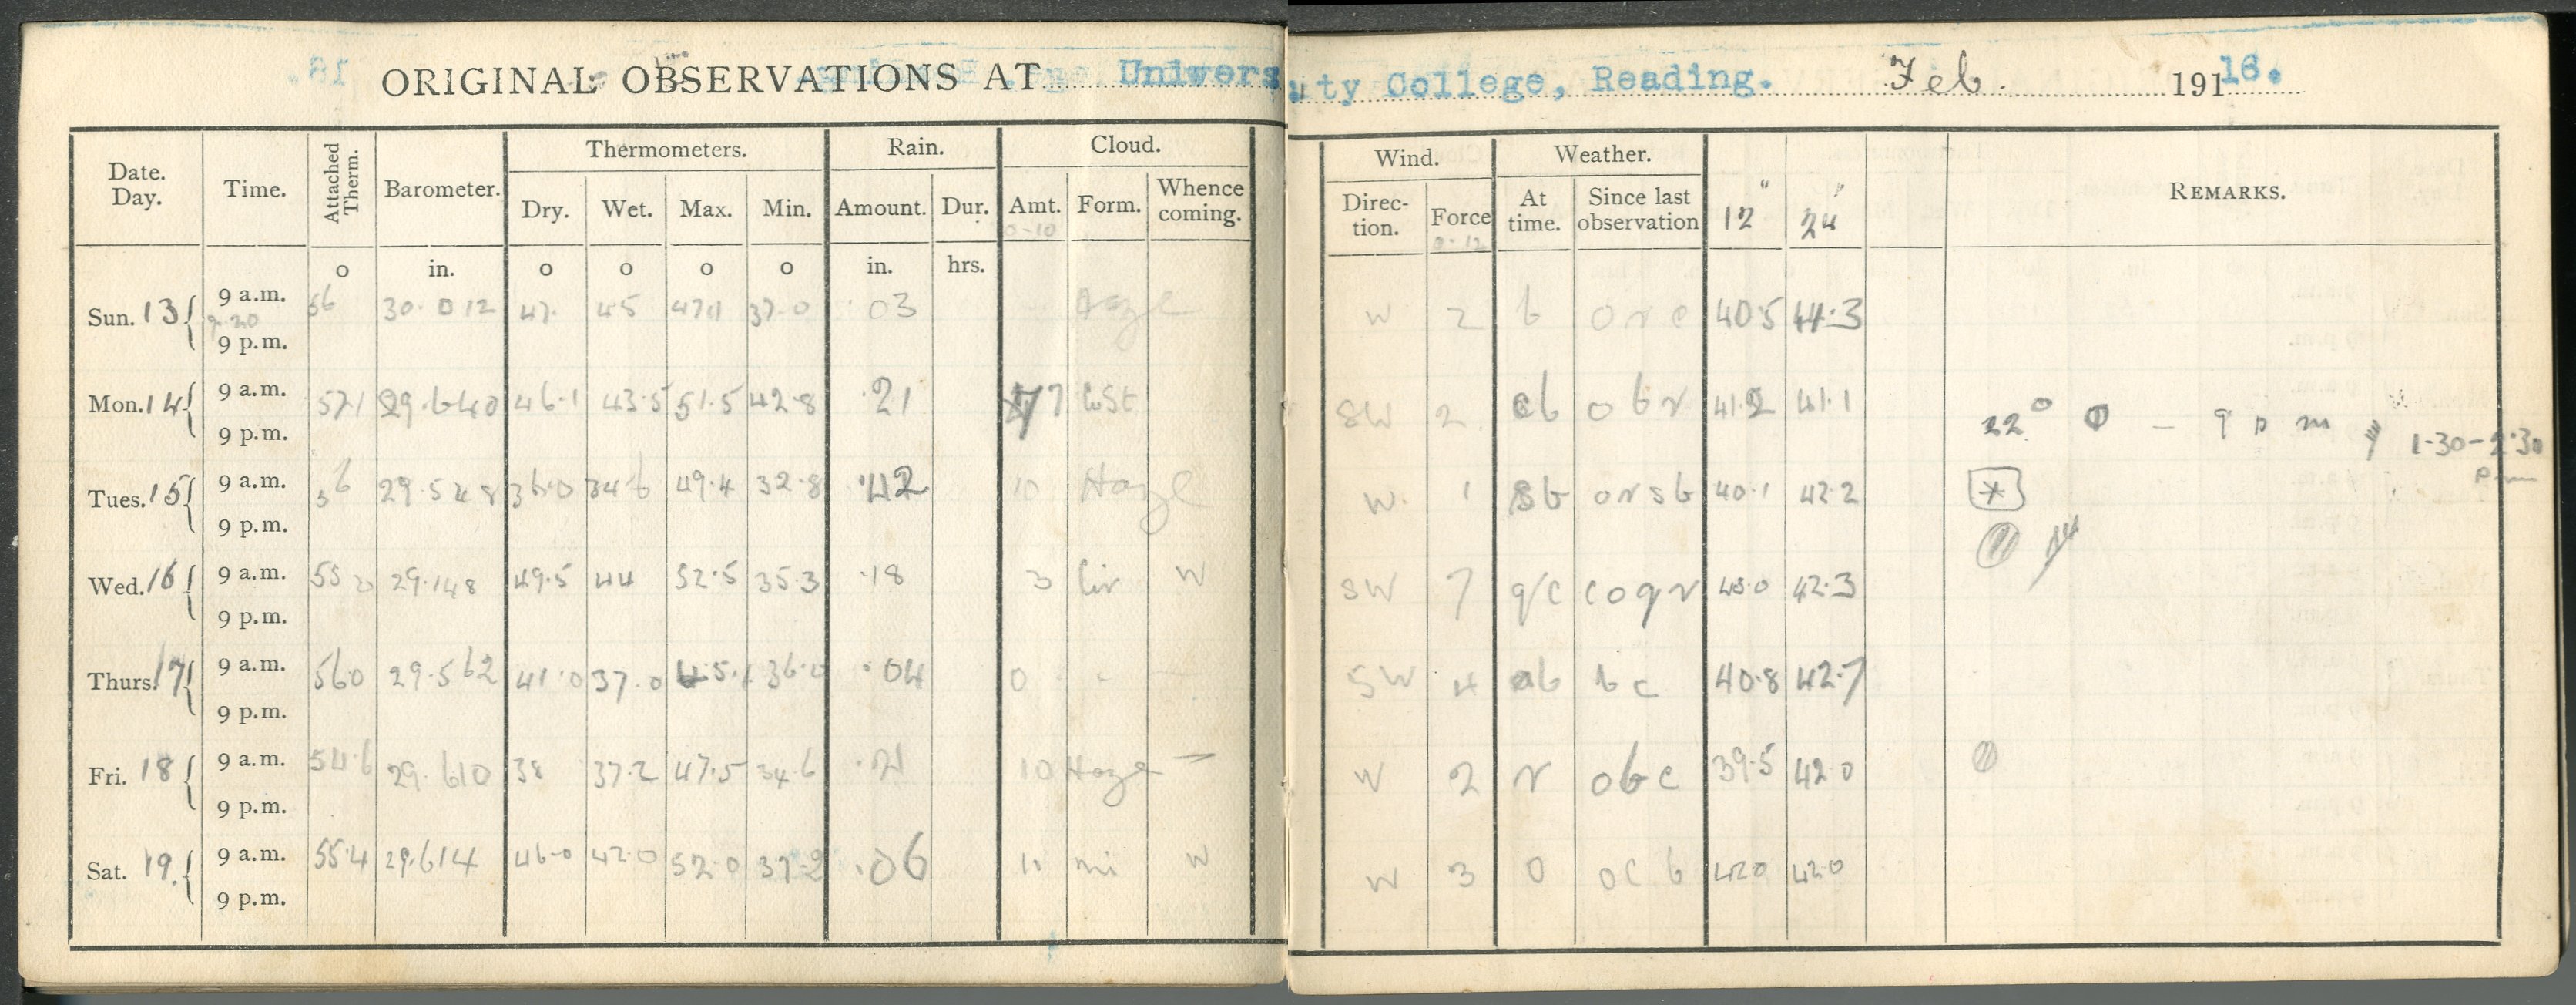 ORIGINAL OBSERVATIONS AT University College, Reading. Feb. 1916.
Date. Day. Time. Attached Therm. Barometer. Thermometers. Rain. Cloud. Wind. Weather. 12" 24" REMARKS.
Dry. Wet. Max. Min. Amount. Dur. Amt. Form. Whence coming. Direc-tion. Force At time. Since last observation
0-10 0-12
o in. o o o o in. hrs.
Sun. 13 9 a.m. 56 30.012 47. 45 47.1 37.0 .03 Haze W 2 b o r c 40.5 41.3
9.20
9 p.m.
Mon. 14 9 a.m. 57.1 29.640 46.1 43.5 51.5 42.8 .21 7 SW 2 cb o b r 41.2 41.1 22° — 9 p m 1-30-2.30 p.m
9 p.m.
Tues. 15 9 a.m. 56 29.528 36.0 34.6 49.4 32.8 .42 10 Haze W. 1 sb orsb 40.1 42.2
9 p.m.
Wed. 16 9 a.m. 55 29.148 49.5 44 52.5 35.3 .18 3 Cir W SW 7 qc coqr 43.0 42.3
9 p.m.
Thurs. 17 9 a.m. 56.0 29.562 41.0 37.0 45.1 36.0 .04 0 - SW 4 b bc 40.8 42.7
9 p.m.
Fri. 18 9 a.m. 54.6 29.610 38 37.2 47.5 34.6 .21 10 Haze — W 2 r obc 39.5 42.0
9 p.m.
Sat. 19. 9 a.m. 55.4 29.614 46.0 42.0 52.0 37.2 .06 10 ni W W 3 o oc b 42.0 42.0
9 p.m.